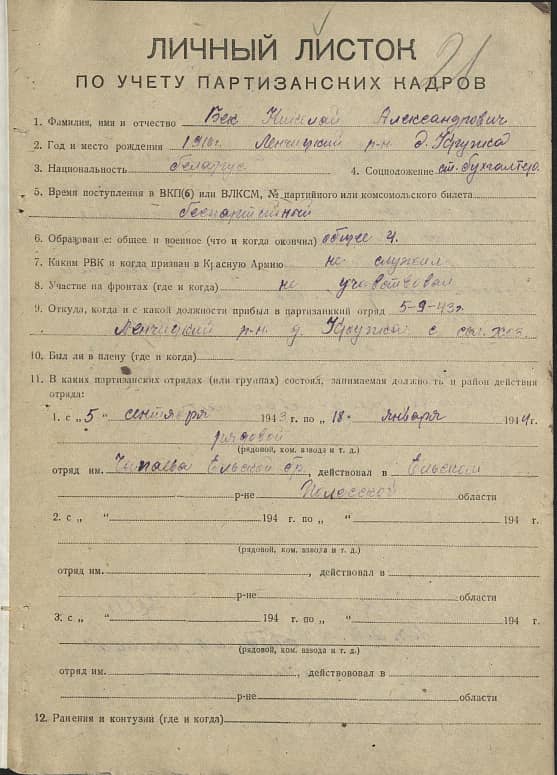 21
ЛИЧНЫЙ ЛИСТОК
ПО УЧЕТУ ПАРТИЗАНСКИХ КАДРОВ
1. Фамилия, имя и отчество Бек Николай Александрович
2. Год и место рождения 1910 г. Ленчицкий р-н д. Кружка
3. Национальность беларус 4. Соцположение ст. бухгалтер
5. Время поступления в ВКП(б) или ВЛКСМ, № партийного или комсомольского билета
беспартийный
6. Образование: общее и военное (что и когда окончил) общее 4.
7. Каким РВК и когда призван в Красную Армию не служил
8. Участие на фронтах (где и когда) не участвовал
9. Откуда, когда и с какой должности прибыл в партизанский отряд 5-9-43 г.
Ленчицкий р-н д. Кружка с хоз.
10. Был ли в плену (где и когда)
11. В каких партизанских отрядах (или группах) состоял, занимаемая должность и район действия
отряда:
1. с „5" сентября 1943 г. по „18" января 1944 г.
рядовой
(рядовой, ком. взвода и т. д.)
отряд им. Чапаева Ельской бр., действовал в Ельском
р-не Полесской области
2. с „ " 194 г. по „ " 194 г.
(рядовой, ком. взвода и т. д.)
отряд им. , действовал в
р-не области
3. с „ " 194 г. по „ " 194 г.
(рядовой, ком. взвода и т. д.)
отряд им. , действовал в
р-не области
12. Ранения и контузии (где и когда)